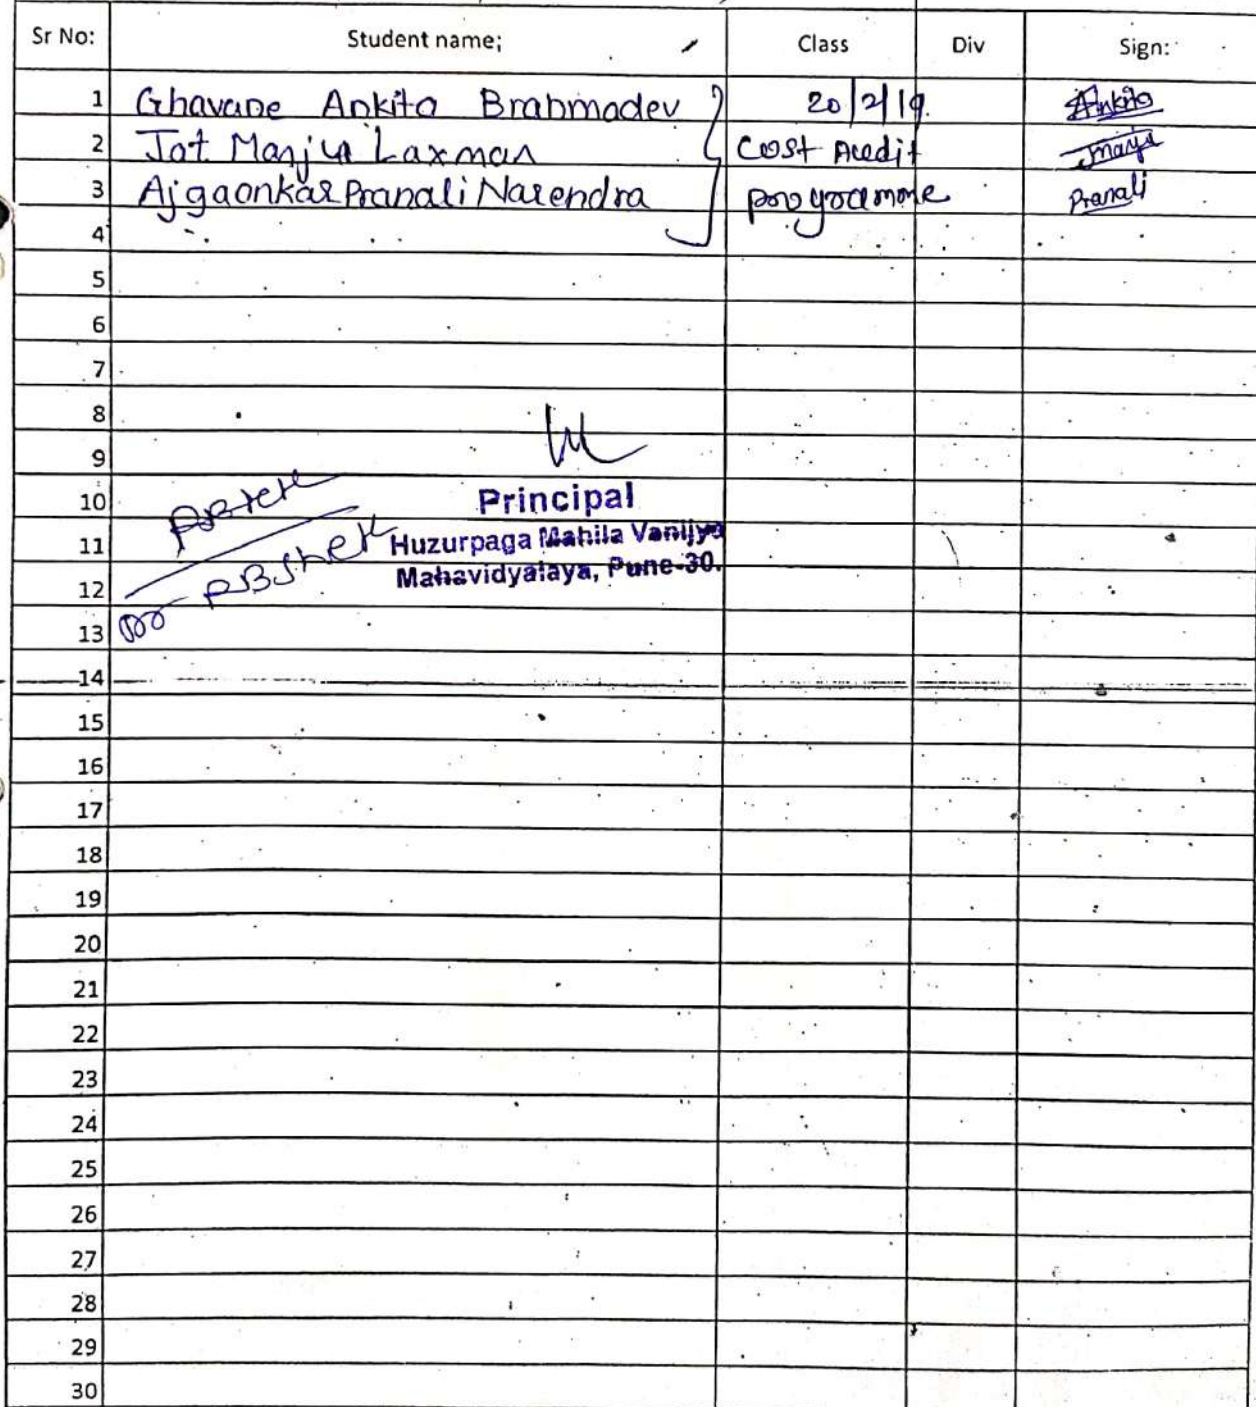 Sr No: Student name; Class Div Sign:
1 Ghavane Ankita Brahmadev 20/2/19. Ankita
2 Jot Manju Laxman Cost Audit
3 Ajgaonkar Pranali Narendra programme Pranali
4
5
6
7
8
9
10 Principal
11 Huzurpaga Mahila Vanijya
12 Mahavidyalaya, Pune-30.
13
14
15
16
17
18
19
20
21
22
23
24
25
26
27
28
29
30